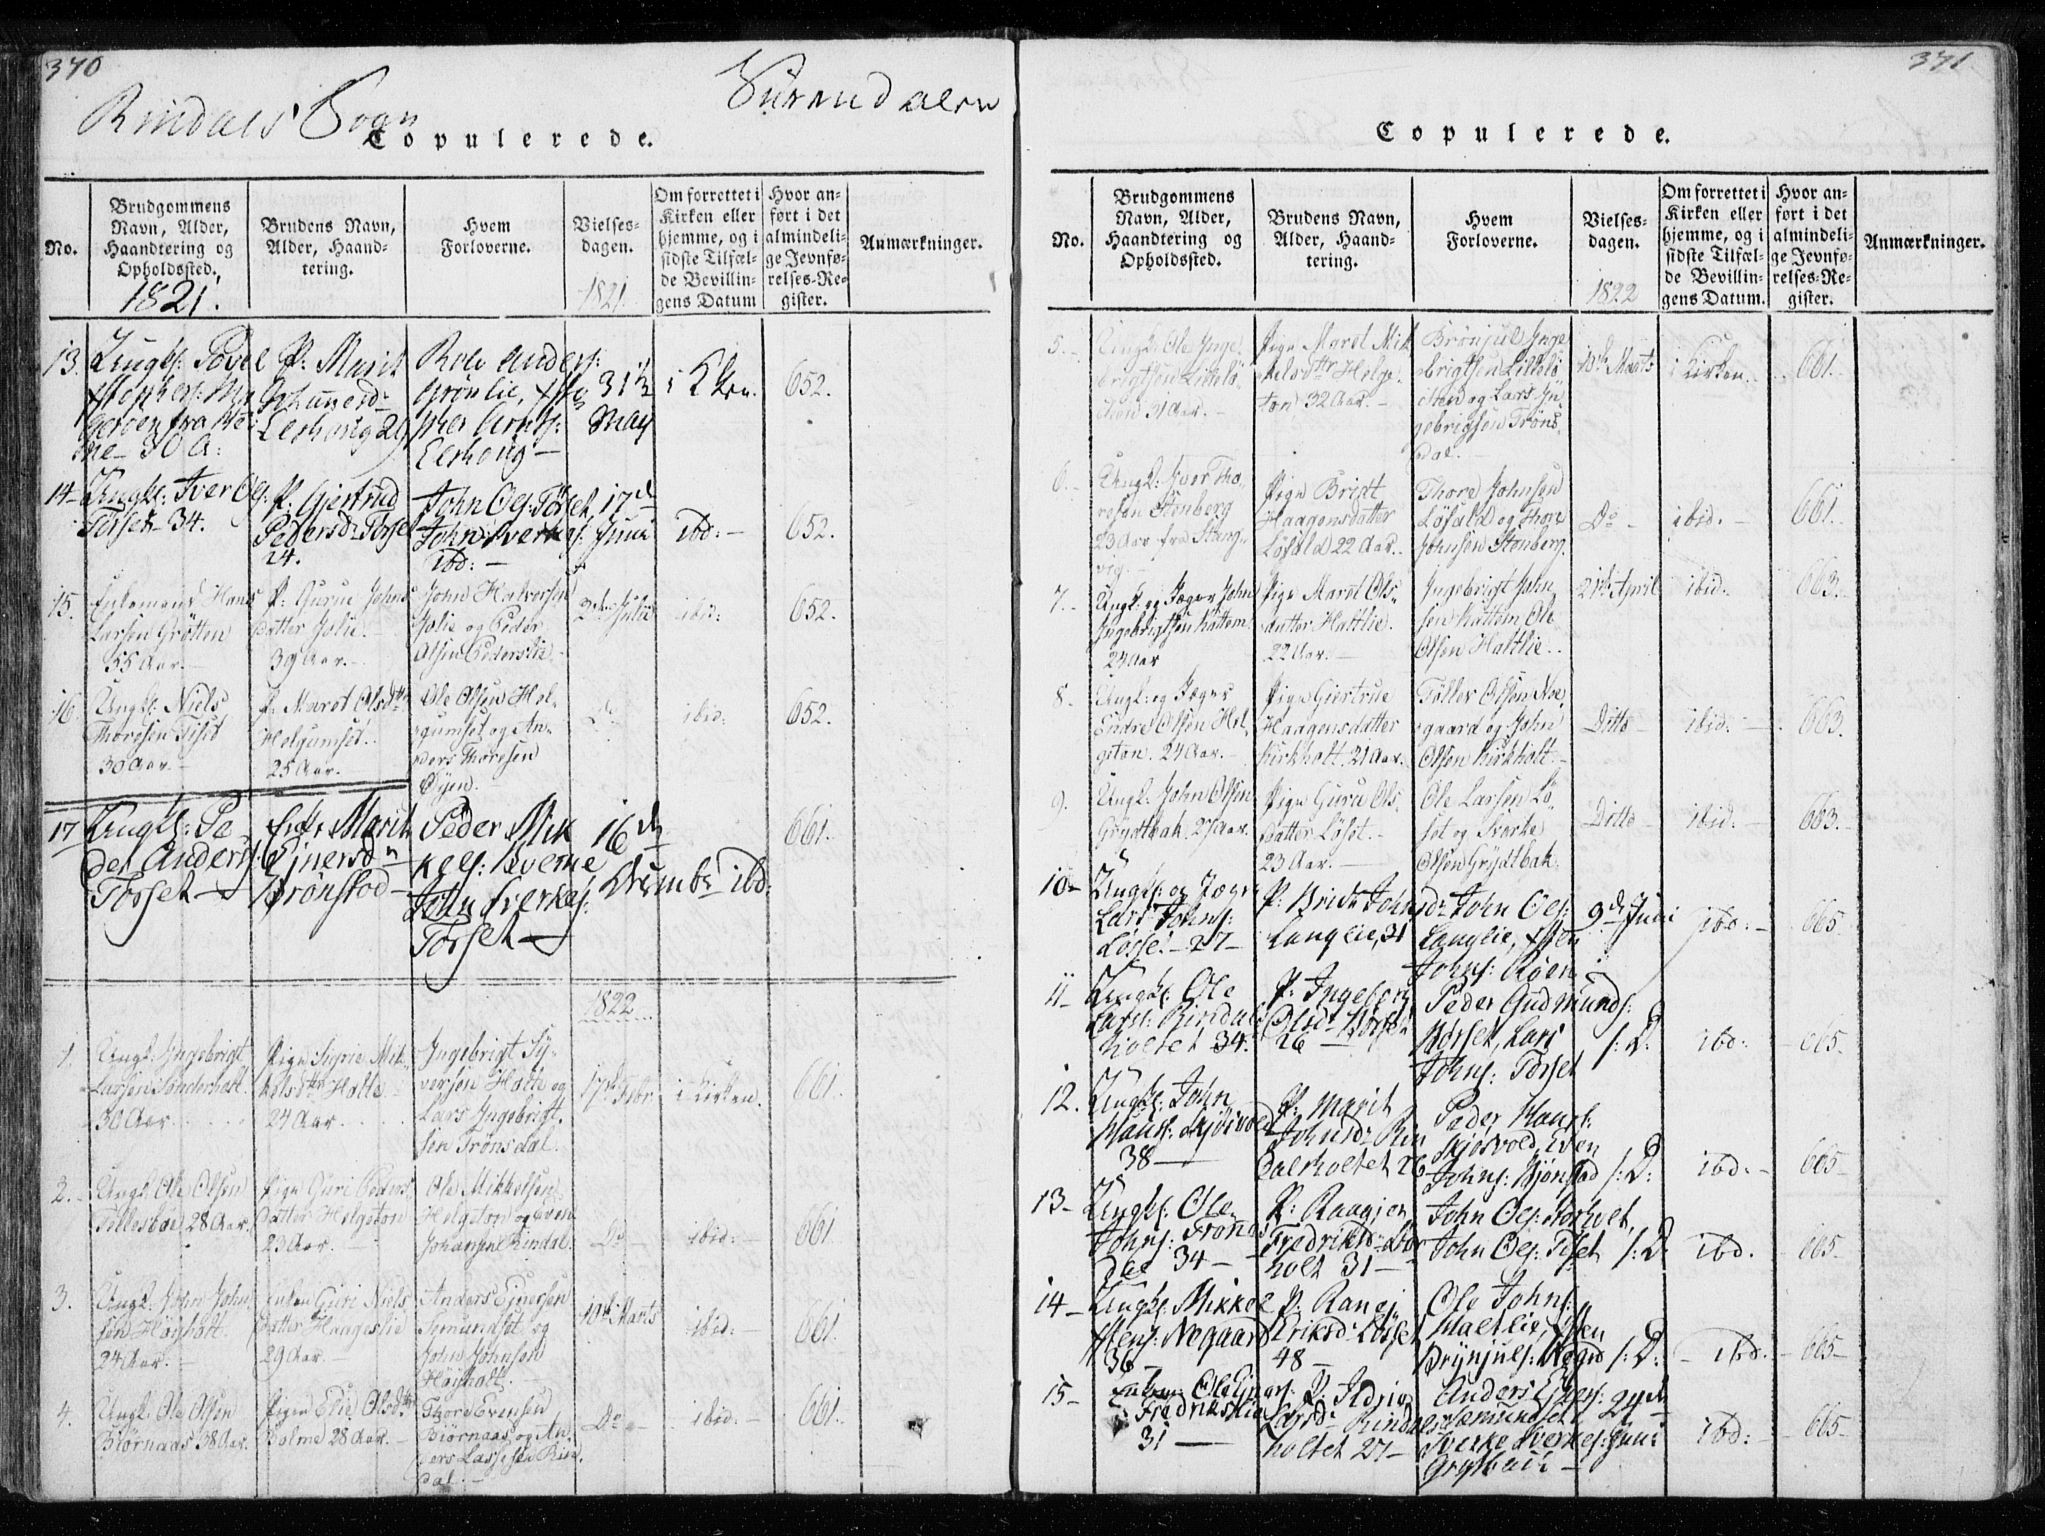 370
Rindals Sogn
Surendalen
Copulerede.
No.
Brudgommens
Navn, Alder,
Haandtering og
Opholdssted.
1821.
Brudens Navn,
Alder, Haand-
tering.
Hvem
Forloverne.
Vielses-
dagen.
1821
Om forrettet i
Kirken eller
hjemme, og i
sidste Tilfæl-
de Bevillin-
gens Datum
Hvor an-
ført i det
almindeli-
ge Jevnfø-
relses-Re-
gister.
Anmærkninger.
13.
Ungk: Povel
30 A:
P. Marit
Role Anders:
Grønlie,
31te
May
i Kken.
652.
14-
Ungk: Iver Ols:
Torset 34.
P. Giertrud
Pedersdr Torset
24.
John Ols: Torset
John Sverkes:
ibd: -
17d
Juni
ibd: -
652.
15.
Enkemand Hans
Larsen Grötten
55 Aar. -
P. Gurue Johns
datter Jolie. -
39 Aar. -
John Halvorsen
Jolie og Peder
Olsen Pederslie
ibid:
652.
16.
Ungk: Niels
Thoresen Tiset
30 Aar. -
P. Maret Olsdtr
Helgumset.
25 Aar.
Ole Olsen Hel-
gumset og An-
ders Thoresen
Øyen. -
Do
ibid:
652.
17
Ungk: Pe
der Anders:
Torset -
Enke Marit
Ejnersdr
Brønstad -
Peder Mik
kels: Bverne
John Sverkes:
Torset -
16de
Decembr
ibd:
661.
1822
1.
Ungk: Ingebrigt
Larsen Sönderholt.
30 Aar.
Pige Sigrie Mik
kelsdtr Holte
24 Aar.
Ingebrigt Sy-
versen Holte og
Lars Ingebrigt-
sen Trönsdal.
17de Febr.
i Kirken.
661.
2.
Ungk. Ole Olsen
Tellesböe 28 Aar.
Pige Guri Peders
datter Helgeton
23 Aar.
Ole Mikkelsen
Helgeton og Even
Johansen Rindal.
Do -
ibid: -
661.
3.
Ungk: John John
sen Höyholt.
24 Aar. -
Enken Guri Niels
datter Haageslie
29 Aar. -
Anders Ejnersen
Semundset og
John Johnsen
Høyholt. -
10de Marts
ibid: -
661.
4.
Ungk. Ole Olsen
Biörnaas 38 Aar.
Pigen Elie Olsdtr
Bolme 28 Aar. -
Thore Evensen
Biörnaas og An
ders Lassesen Rin
dal. -
Do -
ibid: -
661.
371
Copulerede.
No.
Brudgommens
Navn, Alder,
Haandtering og
Opholdssted.
Brudens Navn,
Alder, Haand-
tering.
Hvem
Forloverne.
Vielses-
dagen.
1822
Om forrettet i
Kirken eller
hjemme, og i
sidste Tilfæl-
de Bevillin-
gens Datum.
Hvor an-
ført i det
almindeli-
ge Jevnfø-
relses-Re-
gister.
Anmærkninger.
5. -
Ungk: Ole Inge
brigtsen Lillelö
31 Aar. -
Pige Maret Mik
kelsdtr Helge
ton 32 Aar. -
Brönjul Inge
brigtsen Lillelö
og Lars In
gebrigtsen Tröns
dal. -
10de Marts
i Kirken.
661.
6. -
Ungk: Iver Tho
resen Stenberg
23 Aar fra Stang
vig. -
Pige Brigt
Haagensdatter
Löfald 22 Aar.
Thore Johnsen
Löfald og Thore
Johnsen Stenberg.
Do -
ibid. -
661.
7. -
Ungk: og Jæger John
Ingebrigtsen Kattem.
24 Aar
Pige Maret Ols-
datter Hattlie.
22 Aar. -
Ingebrigt John
sen Kattem Ole
Olsen Hattlie.
21de April
ibid.
663.
8.
Ungk: og Jæger
Endre Olsen Hel-
geton. 24 Aar. -
Pige Giertrue
Haagensdatter
Kirkholt. 21 Aar.
Töller Olsen Noe-
gaard og John
Olsen Kirkholt. -
Ditto -
ibid: -
663.
9.
Ungk: John Olsen
Grytbak. 27 Aar.
Pige Guru Ols-
datter Löset. -
23 Aar. -
Ole Larsen Lö-
set og Sverke
Olsen Grytbak.
Ditto -
ibid: -
663. -
10-
Ungk: og Jæger
Lars Johns:
Løsset - 27 -
P. Brit Johnsdr
Langlie, 31
John Ols:
Langlie, Sten
Johns: Røen
9de Juni
ibd: -
665
11-
Ungk. Ole
Lars: Rindal
holtet 34.
P. Ingeborg
Olsdr
26 -
Peder Gudmunds:
Lars
Johns: Torset
/: D:
ibd:
665.
12.
Ungk: John
Hans: Skjølsvold
38 -
P. Marit
Johnsdr Rin
dalsholtet 26
Peder Hans:
Skjølsvold, Even
Johns: Bjønstad
/: D:
ibd: -
665 -
13-
Ungk: Ole
Johns: Trønas
34 -
P. Ragnjer
Fredriksdr Stor
holt 31 -
John Ols: Storholt,
John Ols: Tiset
/: D.
ibd.
665.
14-
Ungk: Mikkel
Stens: Negaard
36 -
P. Ranej
Eriksdr Løsset
48 -
Ole Johns:
Sten
Brynjuls: Negrd
/: D:
- ibd:
665 -
15-
Ole Ejners:
Fredrikslie
31 -
P. Ildrie
Larsdr Rindals
holtet 27 -
Anders Ejners:
Semundset
Sverke Sverkes:
24de
Juni
ibd:
665.